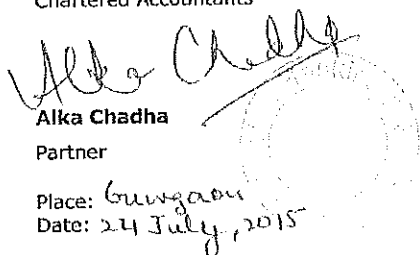 Chartered Accountants
Alka Chadha
Alka Chadha
Partner
Place: Gurgaon
Date: 24 July, 2015